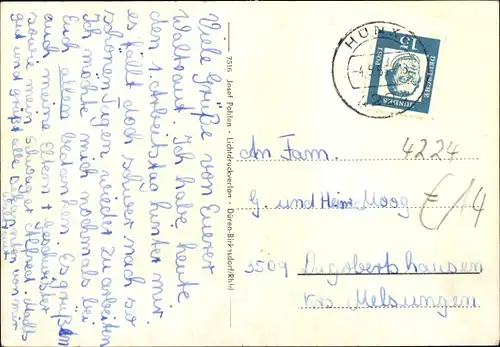 Viele Grüße von Eurer
Waltraut. Ich habe heute
den 1. Arbeitstag hinter mir.
es fällt doch schwer nach so
schönen Tagen wieder zu arbeiten
Ich möcht mich nochmals bei
Euch allen bedanken. Es grüßen
auch meine Eltern + Geschwister
sowie mein Schwager Alfred. Macht's
gut und grüßt alle von mir
7516 Josef Pohlen · Lichtdruckverlag · Düren-Birkesdorf/Rhld
HÜNX
15
DEUTSCHE
BUNDES
POST
An Fam.
G. und Heinr Moog
3509 Dagobertshausen
Krs Melsungen
4224
€/14